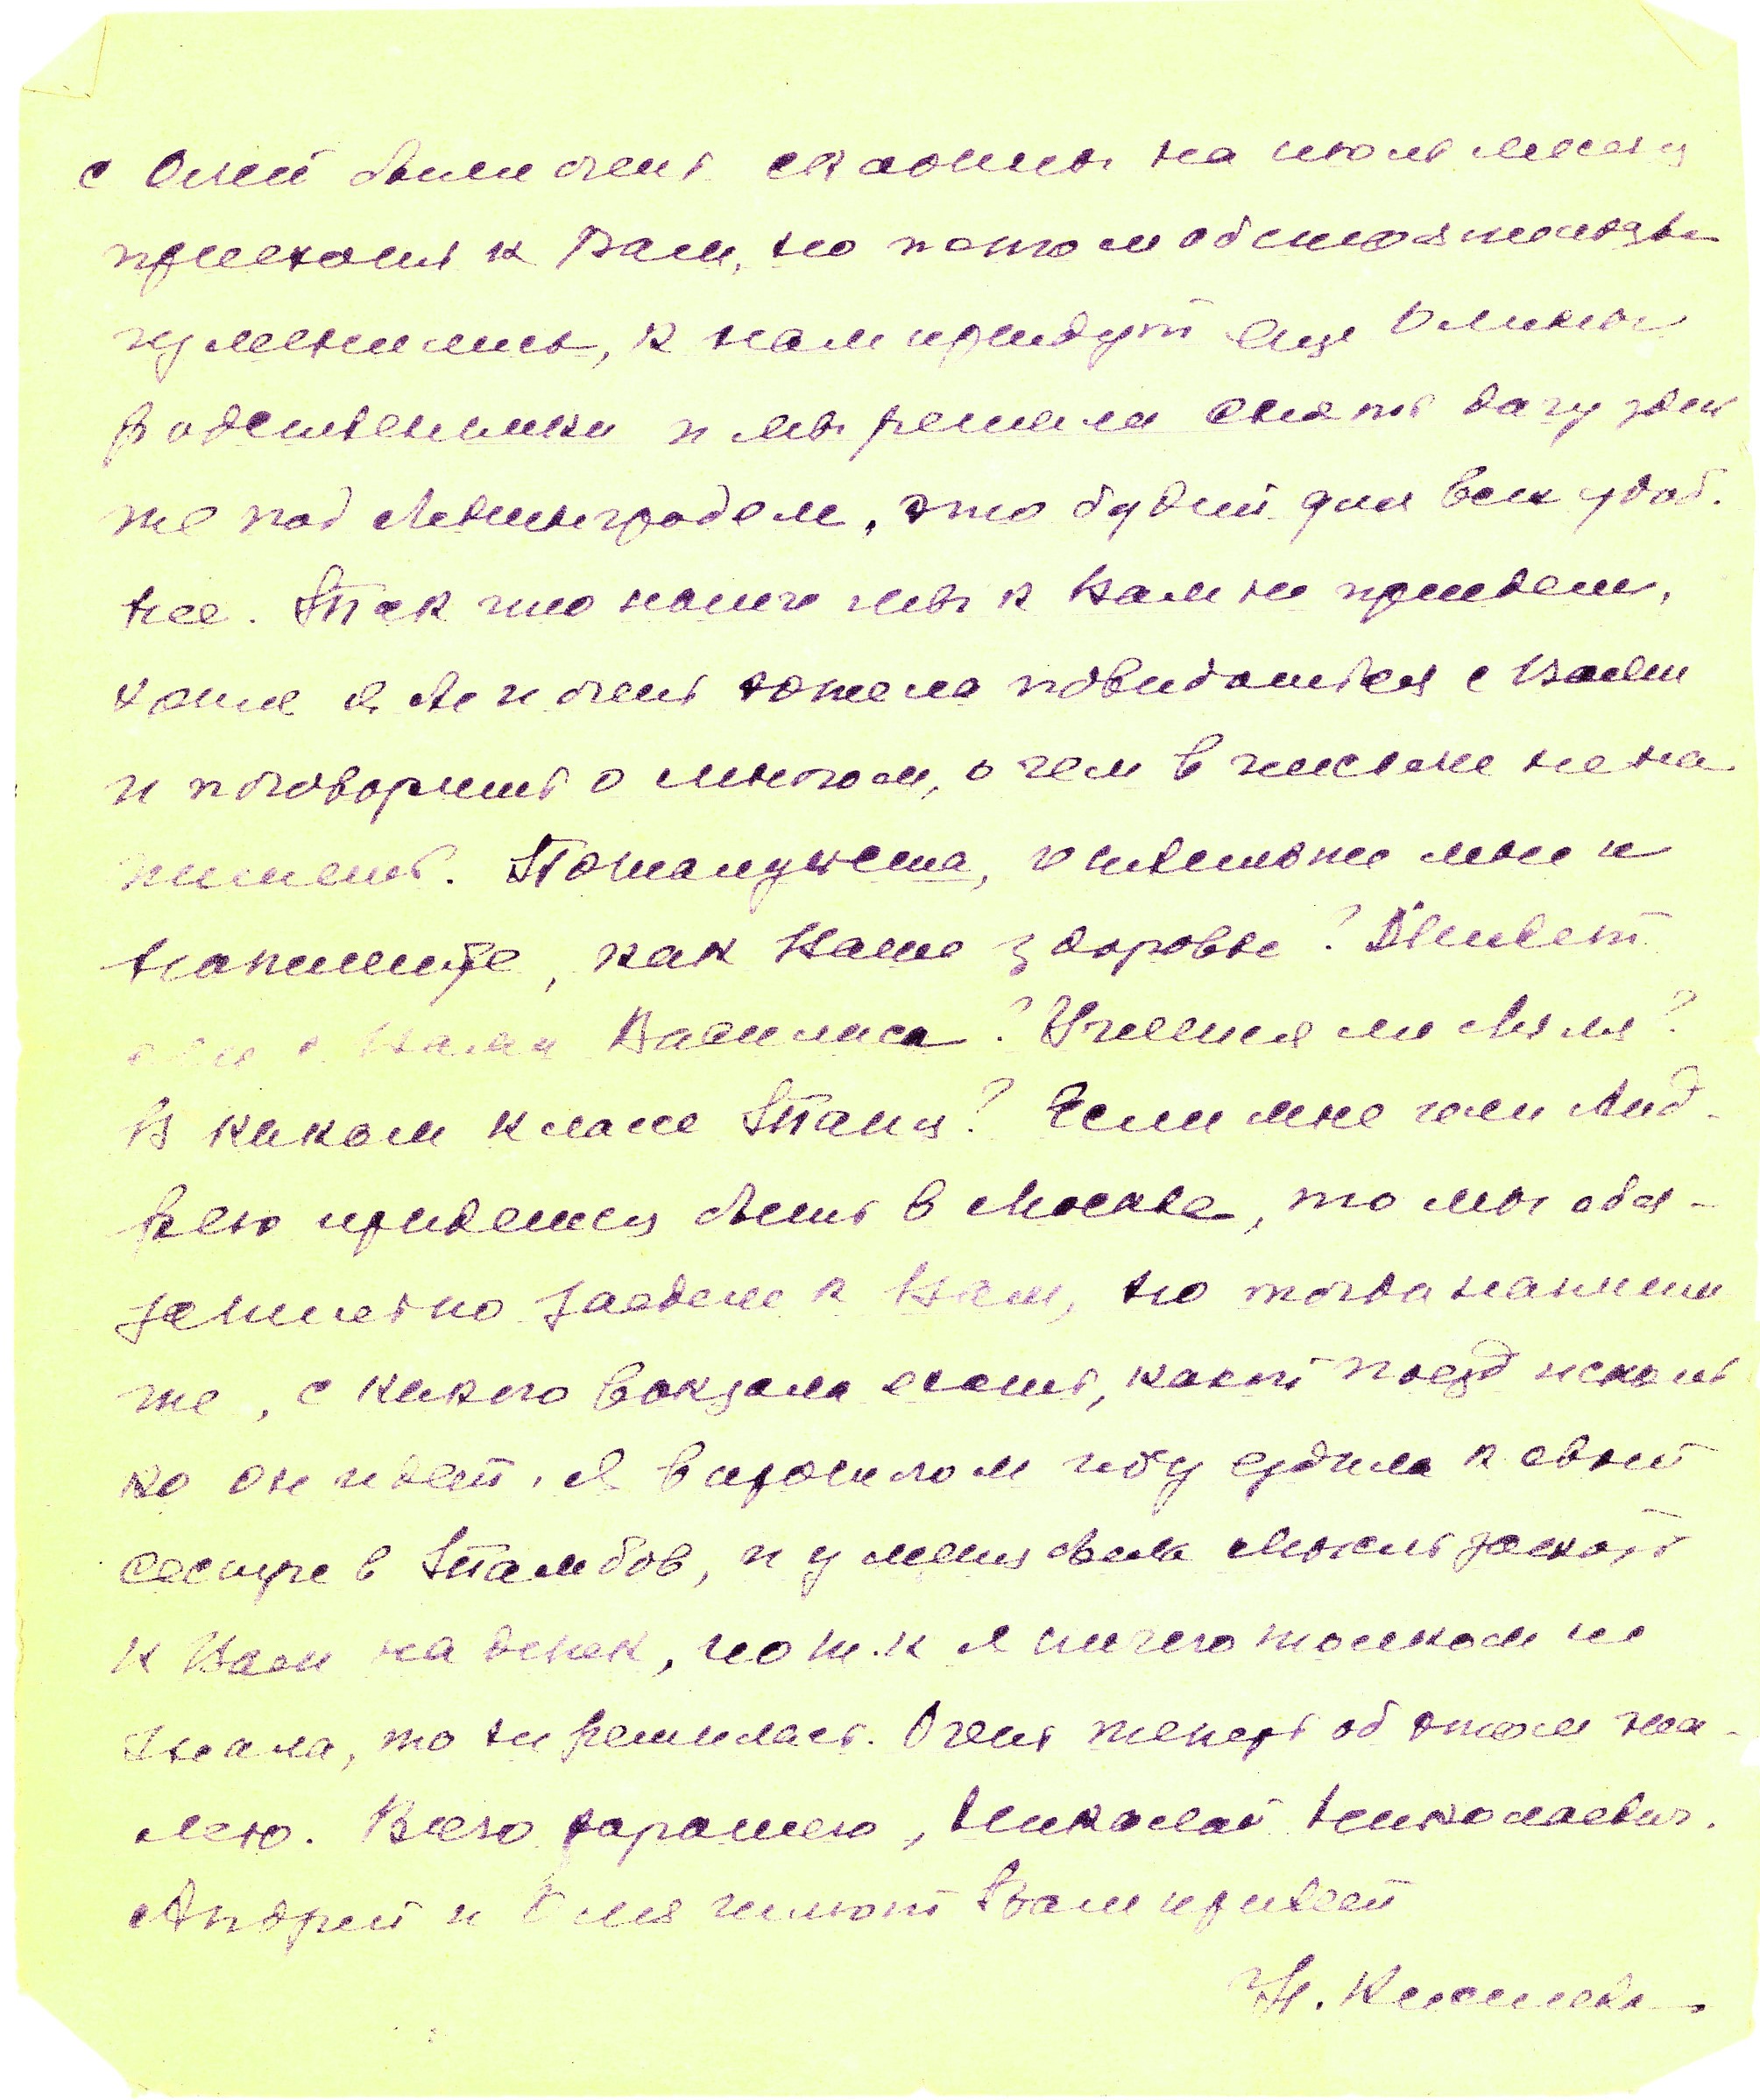 с Олей были очень склонны на июль месяц
приехать к Вам, но потом обстоятельства
изменились, к нам приедут еще Олины
родственники и мы решили снять дачу здесь
же под Ленинградом, это будет для всех удоб-
нее. Так что нынче мы к Вам не приедем,
хотя я бы и очень хотела повидаться с Вами
и поговорить о многом, о чем в письме не на
пишешь. Пожалуйста, ответьте мне и
напишите, как Ваше здоровье? Живет
ли с Вами Василиса? Учится ли Ляля?
В каком классе Таня? Если мне или Анд-
рею придется быть в Москве, то мы обя-
зательно заедем к Вам, но тогда напиши
те, с какого вокзала ехать, какой поезд и сколь
ко он идет. Я в прошлом году ездила к своей
сестре в Тамбов, и у меня была мысль заехать
к Вам на денек, но т.к я ничего толком не
знала, то не решилась. Очень теперь об этом жа-
лею. Всего хорошего, Николай Николаевич.
Андрей и Оля шлют Вам привет
Н.